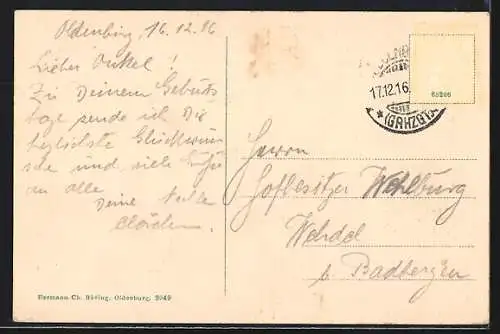 Oldenburg, 16.12.16
Lieber Onkel!
Zu Deinem Geburts
tage sende ich Dir
herzlichste Glückwün
sche und viele Grüße
an alle
Deine Nichte
17.12.16.
(GRHZGT)
65266
Herrn
Hofbesitzer Wehlburg
Wehdel
b Badbergen
Hermann Ch. Büsing, Oldenburg. 3049